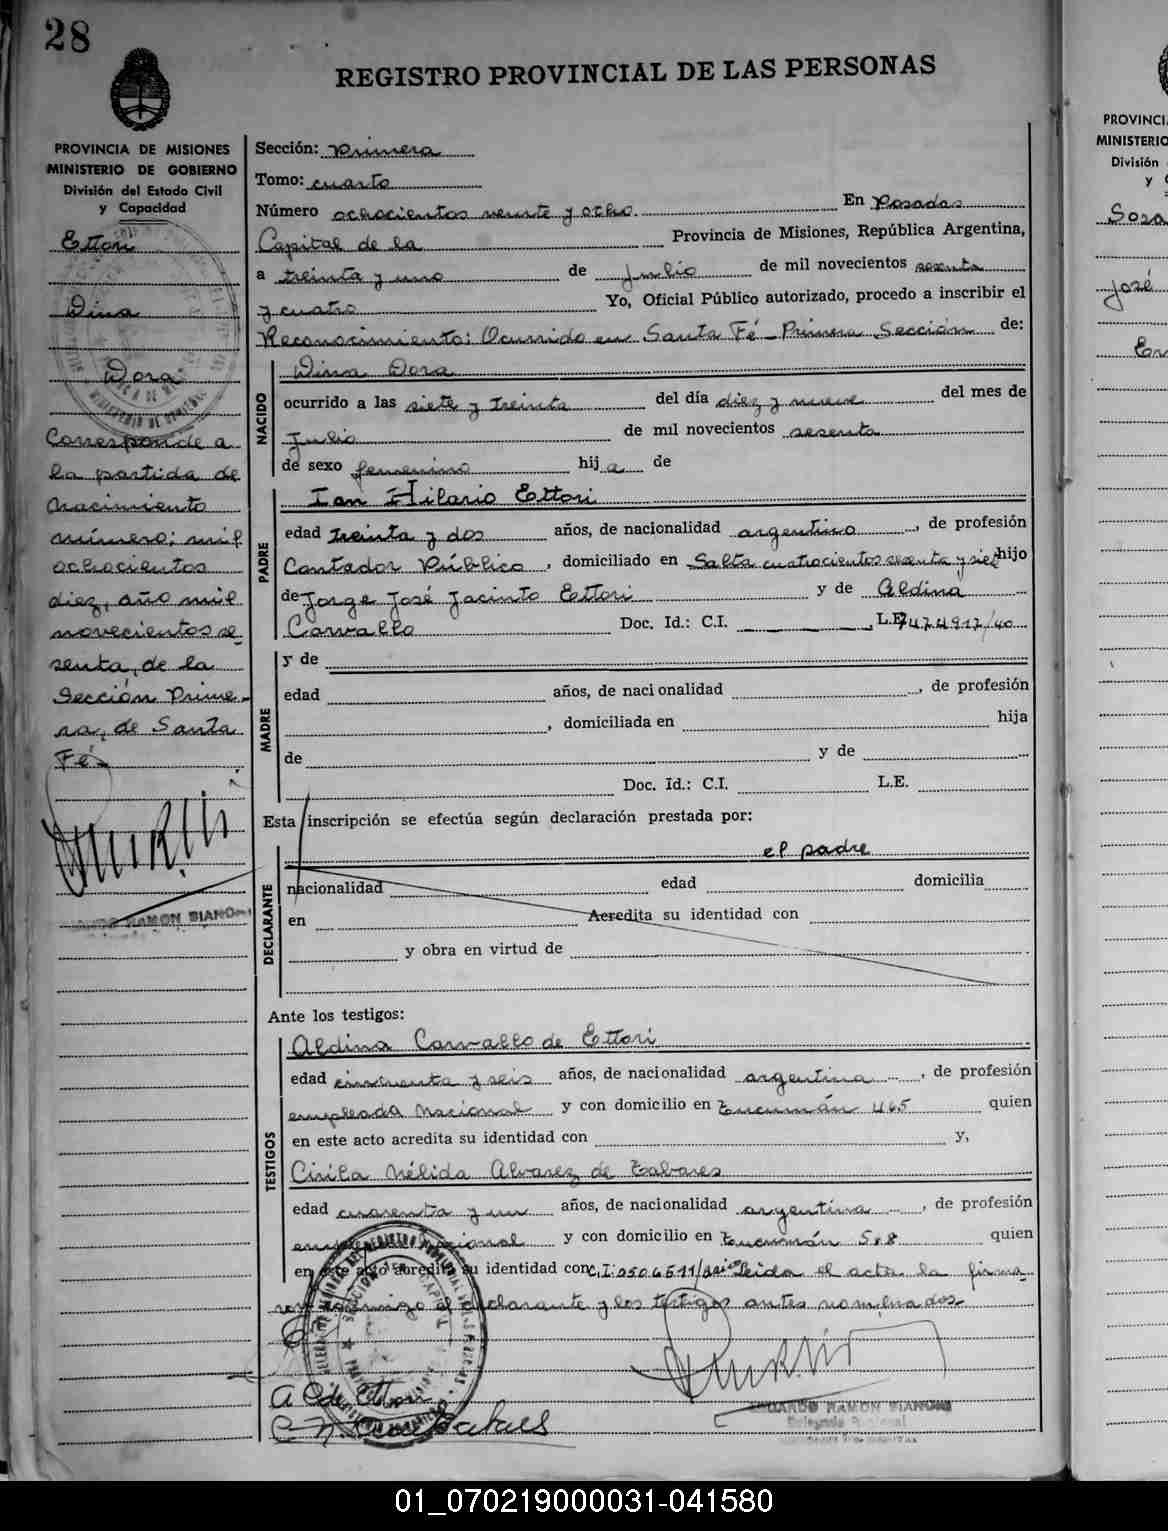 28
REGISTRO PROVINCIAL DE LAS PERSONAS
PROVINCIA DE MISIONES
MINISTERIO DE GOBIERNO
División del Estado Civil
y Capacidad
Ettori
Dina
Dora
Corresponde a
la partida de
nacimiento
número: mil
ochocientos
diez, año mil
novecientos se
senta, de la
Sección Prime-
ra, de Santa
Fé.-
RAMON BIAN
Sección: Primera
Tomo: cuarto
Número ochocientos veinte y ocho. En Posadas
Capital de la Provincia de Misiones, República Argentina,
a treinta y uno de Julio de mil novecientos sesenta
y cuatro Yo, Oficial Público autorizado, procedo a inscribir el
Reconocimiento: Ocurrido en Santa Fé - Primera Sección de:
NACIDO
Dina Dora
ocurrido a las siete y treinta del día diez y nueve del mes de
Julio de mil novecientos sesenta
de sexo femenino hija de
PADRE
Ian Hilario Ettori
edad treinta y dos años, de nacionalidad argentino, de profesión
Contador Público, domiciliado en Salta cuatrocientos sesenta y siete hijo
de Jorge José Jacinto Ettori y de Aldina
Carvallo Doc. Id.: C.I. , L.E.
MADRE
y de
edad años, de nacionalidad , de profesión
, domiciliada en hija
de y de
Doc. Id.: C.I. L.E.
Esta inscripción se efectúa según declaración prestada por:
DECLARANTE
el padre
nacionalidad edad domicilia
en Acredita su identidad con
y obra en virtud de
Ante los testigos:
TESTIGOS
Aldina Carvallo de Ettori
edad cincuenta y seis años, de nacionalidad argentina, de profesión
empleada Nacional y con domicilio en Tucumán 465 quien
en este acto acredita su identidad con y,
Cirila Nélida Alvarez de Tabares
edad cuarenta y un años, de nacionalidad argentina, de profesión
empleada Nacional y con domicilio en Tucumán 528 quien
en este acto acredita su identidad con C.I. Leida el acta la firma
ron conmigo el declarante y los testigos antes nominados.-
A C de Ettori
EDUARDO RAMON BIANCHI
PROVINCI
MINISTERIO
División
y
Sosa
José